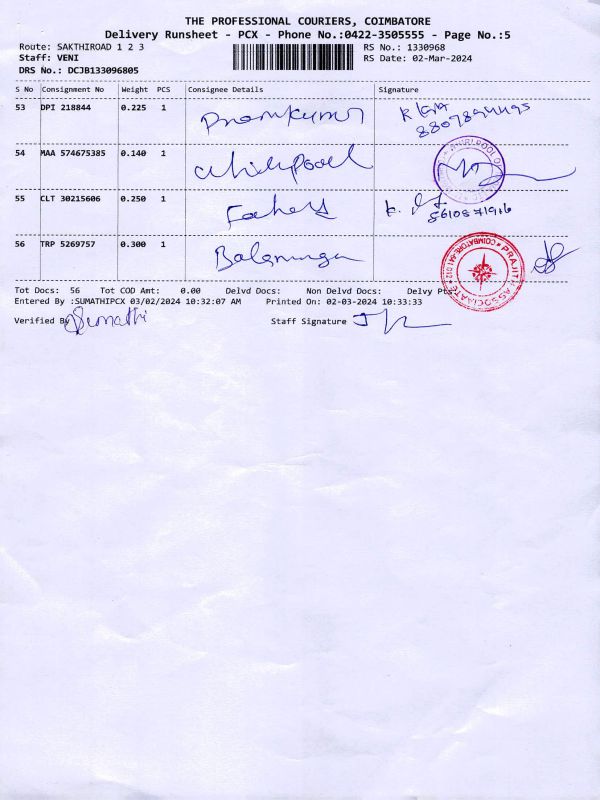 THE PROFESSIONAL COURIERS, COIMBATORE
Delivery Runsheet - PCX - Phone No.:0422-3505555 - Page No.:5
Route: SAKTHIROAD 1 2 3
RS No.: 1330968
Staff: VENI
RS Date: 02-Mar-2024
DRS No.: DCJB133096805
S No Consignment No Weight PCS Consignee Details Signature
53 DPI 218844 0.225 1 Premkumar
54 MAA 574675385 0.140 1 Whirlpool
WHIRLPOOL OF
55 CLT 30215606 0.250 1
56 TRP 5269757 0.300 1
PRAJITH ASSOCIATE
COIMBATORE-641 012
Tot Docs: 56 Tot COD Amt: 0.00 Delvd Docs: Non Delvd Docs: Delvy Pts:
Entered By :SUMATHIPCX 03/02/2024 10:32:07 AM Printed On: 02-03-2024 10:33:33
Verified By Sumathi Staff Signature